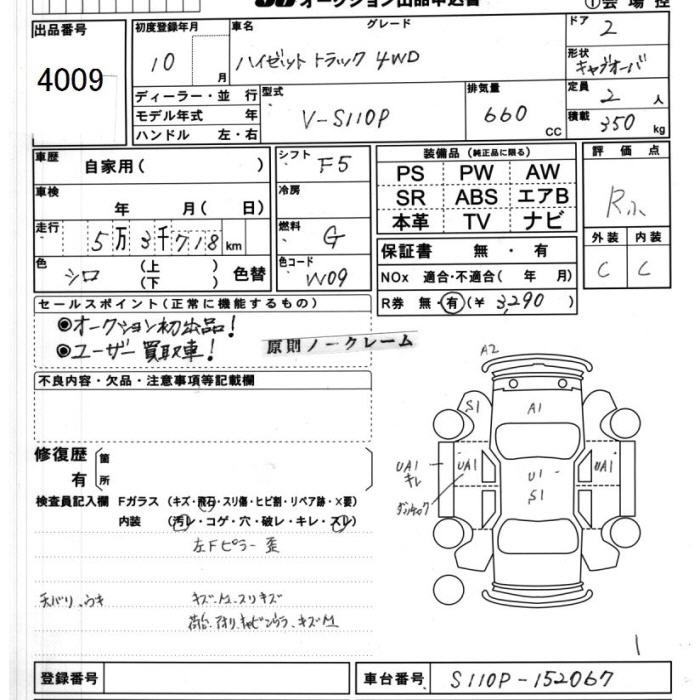 オークション出品申込書 ①会場控
出品番号 初度登録年月 車名 グレード ドア 2
4009 10 月 ハイゼットトラック 4WD 形状 キャブオーバ
ディーラー・並 行 型式 V-S110P 排気量 660 CC 定員 2 人
モデル年式 年 積載 350 kg
ハンドル 左・右
車歴 自家用( ) シフト F5 装備品(純正品に限る) 評価点
車検 年 月( 日) 冷房 PS PW AW
SR ABS エアB
本革 TV ナビ
走行 5万3千718km 燃料 G 保証書 無・有 外装 内装
C C
色 シロ (上 下) 色替 色コード W09 NOx 適合・不適合( 年 月)
R券 無・有(¥ 3,290 )
セールスポイント(正常に機能するもの)
◉オークション初出品!
◉ユーザー買取車!
原則ノークレーム
不良内容・欠品・注意事項等記載欄
A2
S1 A1
UA1 キレ UA1 U1 S1 UA1
修復歴 有 箇所
検査員記入欄 Fガラス (キズ・飛石・スリ傷・ヒビ割・リペア跡・×要)
内装 (汚レ・コゲ・穴・破レ・キレ・スレ)
左Fピラー 歪
天バリ、ウキ キズ、M、スリキズ
1
登録番号 車台番号 S110P-152067